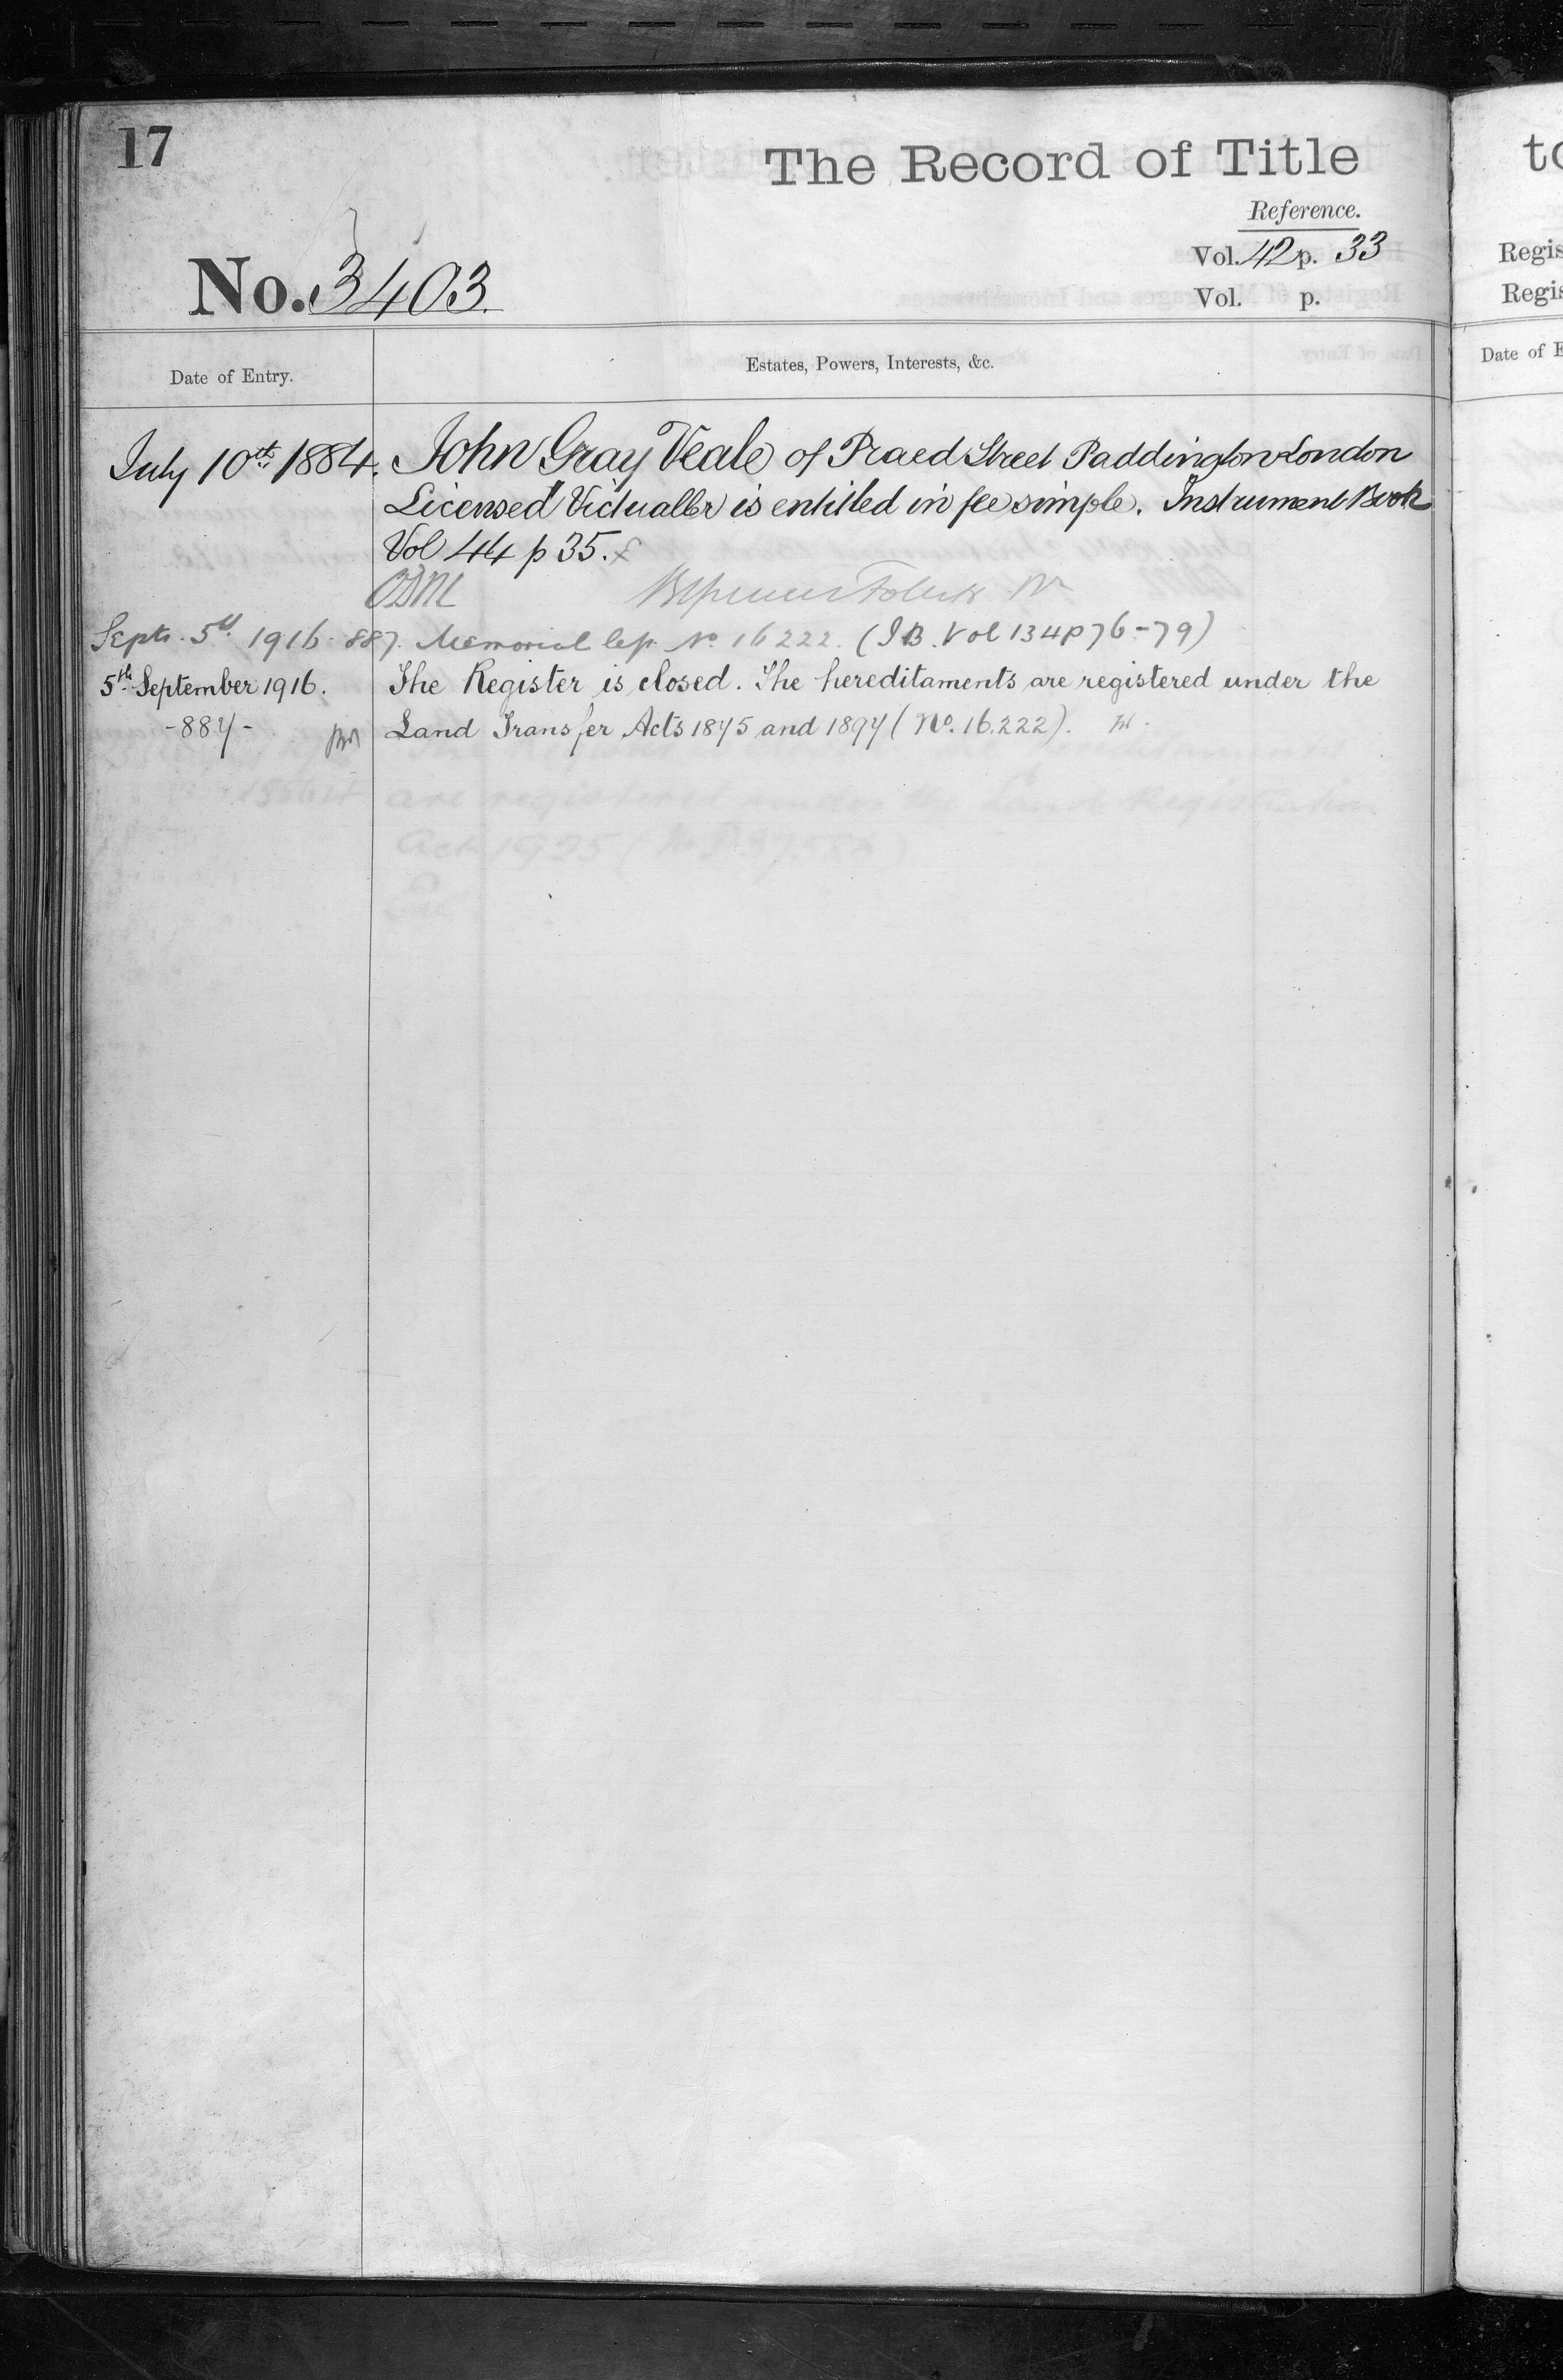 17
The Record of Title
Reference.
Vol. 42 p. 33
No. 3403.
Vol. p.
Date of Entry.
Estates, Powers, Interests, &c.
July 10th 1884. John Gray Veale of Praed Street Paddington London
Licensed Victualler is entitled in fee simple. Instrument Book
Vol 44 p 35.
Septr. 5th 1916 - 887. Memorial No 16222. (I.B. Vol 134 p 76-79)
5th September 1916. The Register is closed. The hereditaments are registered under the
-887- Land Transfer Acts 1875 and 1897 (No. 16.222).
to
Regis
Regis
Date of E